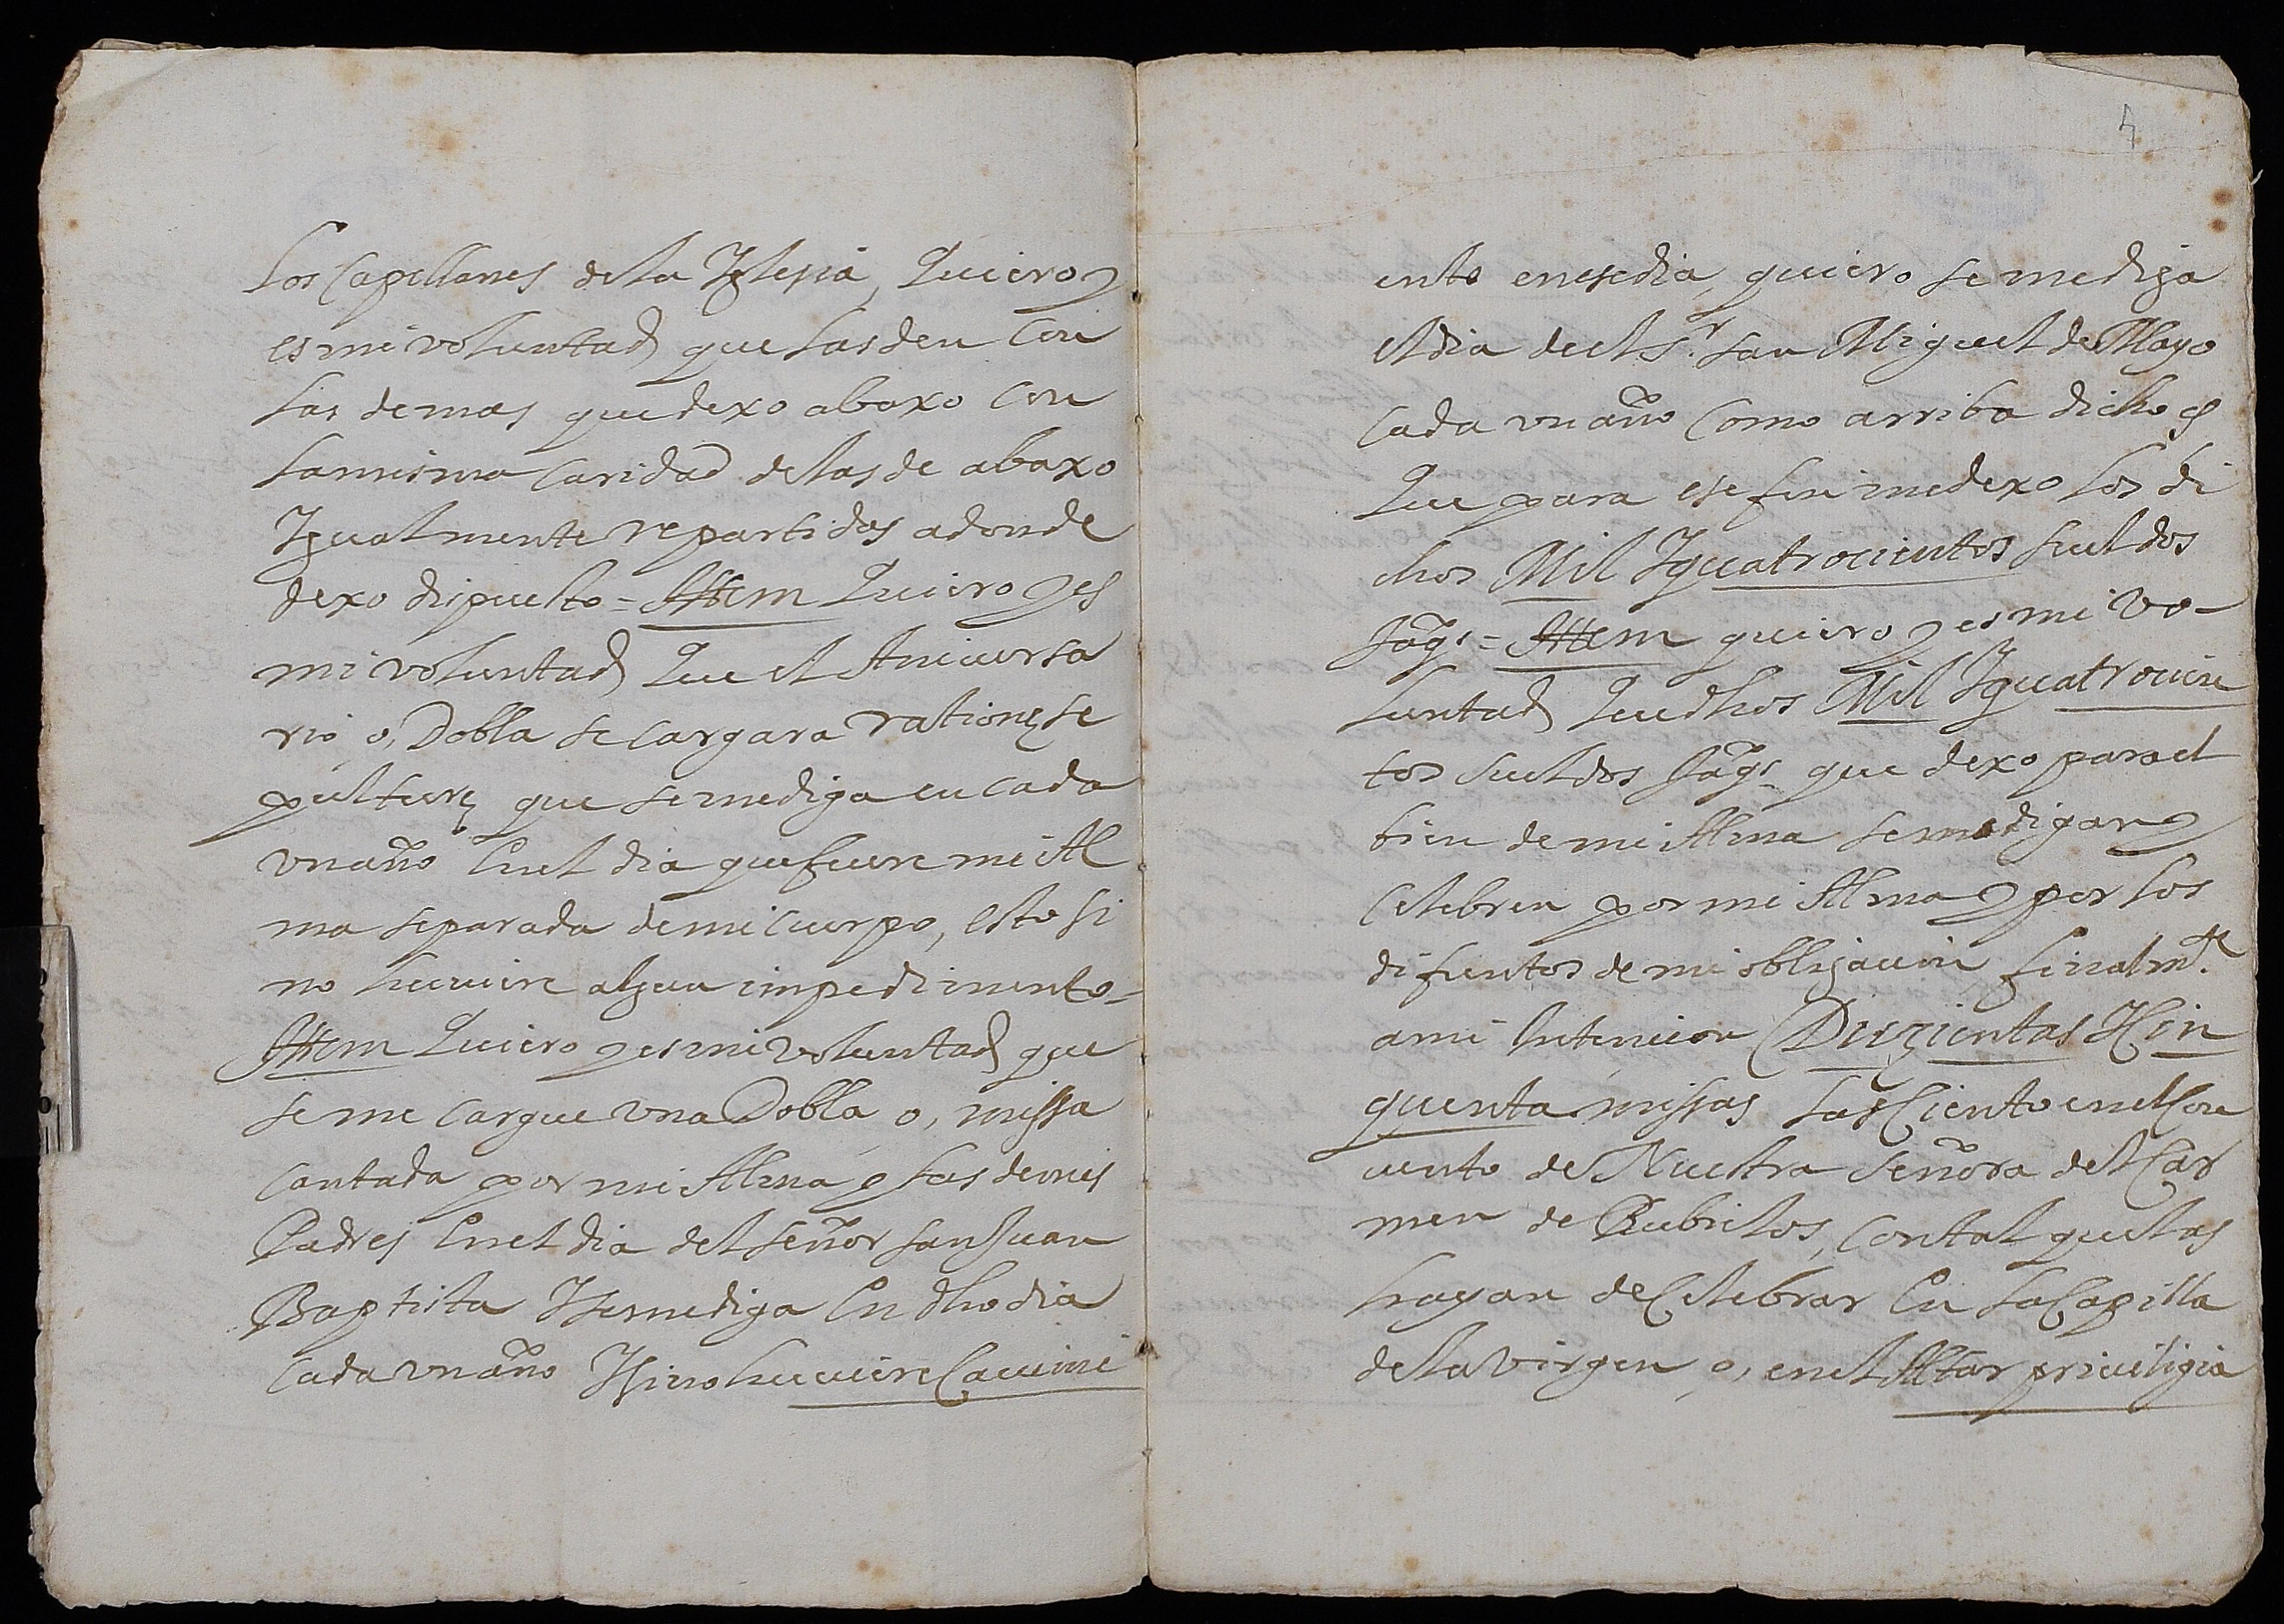 Los Capellanes de la Iglesia, Quiero y
es mi voluntad que las den con
las demas que dexo abaxo con
la misma Caridad de las de abaxo
Igualmente repartidos adonde
dexo dispuesto = Ittem Quiero y es
mi voluntad Que el Aniversa
rio o, Dobla se cargara rationę se
pulturę que se me diga en cada
vn año En el dia que fuere mi Al
ma separada de mi cuerpo, esto si
no huuiere algun impedimento =
Ittem Quiero y es mi voluntad que
se me cargue vna Dobla o, missa
cantada por mi Alma y las de mis
Padres En el dia del señor san Juan
Baptista Y se me diga En dho dia
Cada vn año Y si no huuiere Cauimi
4
ento en ese dia, quiero se me diga
el dia de el Sr. san Miguel de Mayo
Cada vn año Como arriba dicho es
Que para ese fin me dexo los di
chos Mil Y quatrocientos sueldos
Jags = Ittem quiero y es mi vo-
luntad Que dhos Mil Y quatrocien
tos sueldos Jags que dexo para el
bien de mi Alma se me digan y
Celebren por mi Alma y por los
difuntos de mi obligacion, finalmte.
a mi Intencion Duzientas Y Cin
quenta missas las Ciento en el Con
uento de Nuestra Señora del Car
men de Rubielos, Con tal que las
hayan de Celebrar En la Capilla
de la virgen, o, en el Altar priuiligia